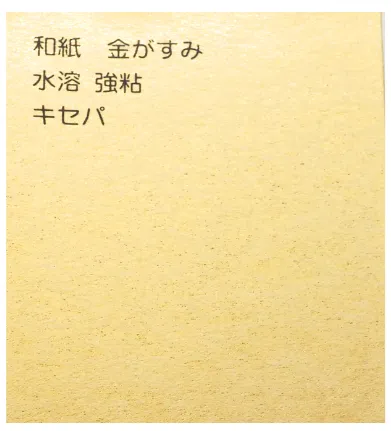 和紙　金がすみ
水溶 強粘
キセパ